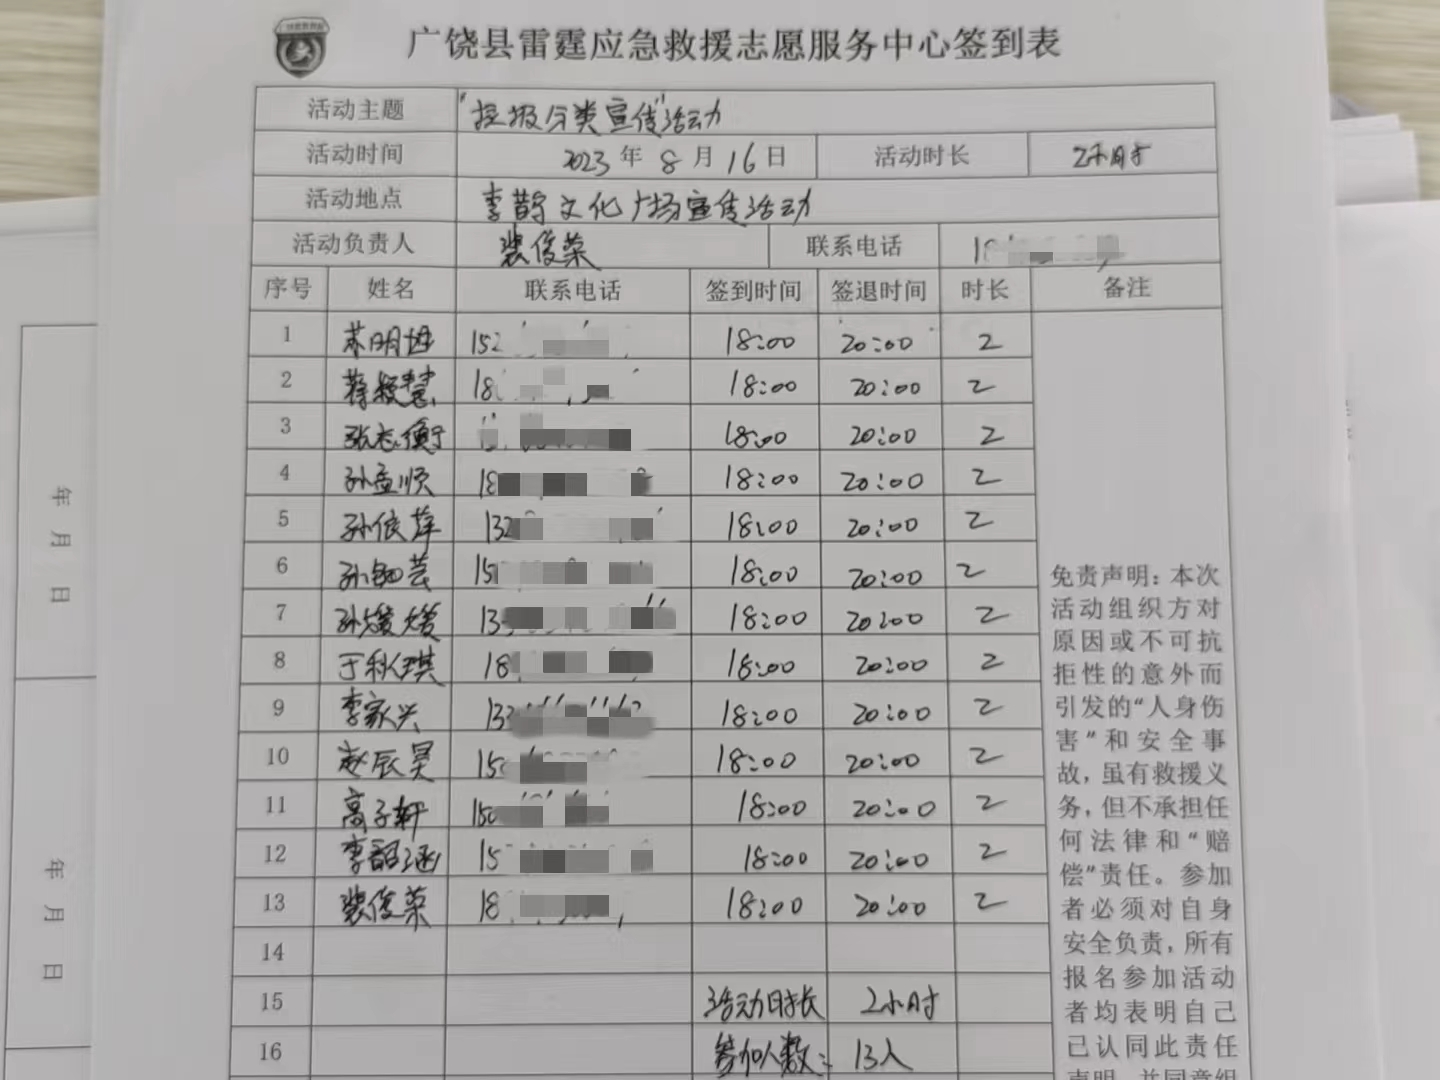 广饶县雷霆应急救援志愿服务中心签到表
活动主题 "垃圾分类宣传"活动
活动时间 2023年8月16日 活动时长 2小时
活动地点 李鹊文化广场宣传活动
活动负责人 裴俊荣 联系电话
序号 姓名 联系电话 签到时间 签退时间 时长 备注
1 苏明进 152 18:00 20:00 2
2 蒋颖慧 18 18:00 20:00 2
3 张志衡 18:00 20:00 2
4 孙孟顺 18 18:00 20:00 2
5 孙依萍 132 18:00 20:00 2
6 15 18:00 20:00 2
7 孙媛媛 13 18:00 20:00 2
8 于秋琪 18 18:00 20:00 2
9 李家兴 133 18:00 20:00 2
10 赵辰昊 15 18:00 20:00 2
11 高子轩 150 18:00 20:00 2
12 李韶涵 15 18:00 20:00 2
13 裴俊荣 18 18:00 20:00 2
14
15 活动时长 2小时
16 参加人数: 13人
免责声明:本次
活动组织方对
原因或不可抗
拒性的意外而
引发的"人身伤
害"和安全事
故,虽有救援义
务,但不承担任
何法律和"赔
偿"责任。参加
者必须对自身
安全负责,所有
报名参加活动
者均表明自己
已认同此责任
声明,并同意组
年 月 日
年 月 日